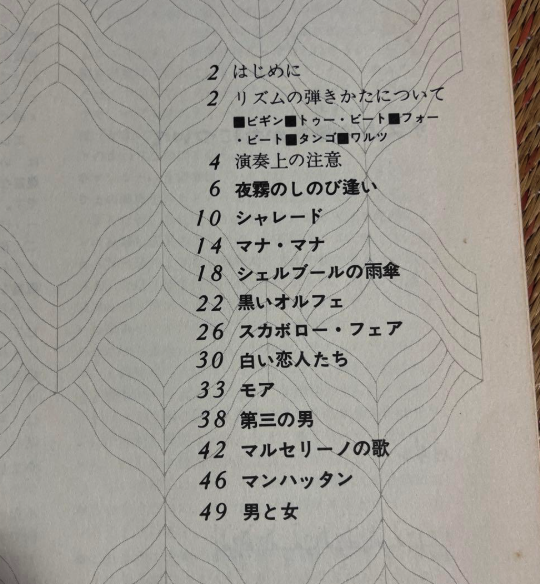 2 はじめに
2 リズムの弾きかたについて
■ビギン■トゥー・ビート■フォー
・ビート■タンゴ■ワルツ
4 演奏上の注意
6 夜霧のしのび逢い
10 シャレード
14 マナ・マナ
18 シェルブールの雨傘
22 黒いオルフェ
26 スカボロー・フェア
30 白い恋人たち
33 モア
38 第三の男
42 マルセリーノの歌
46 マンハッタン
49 男と女